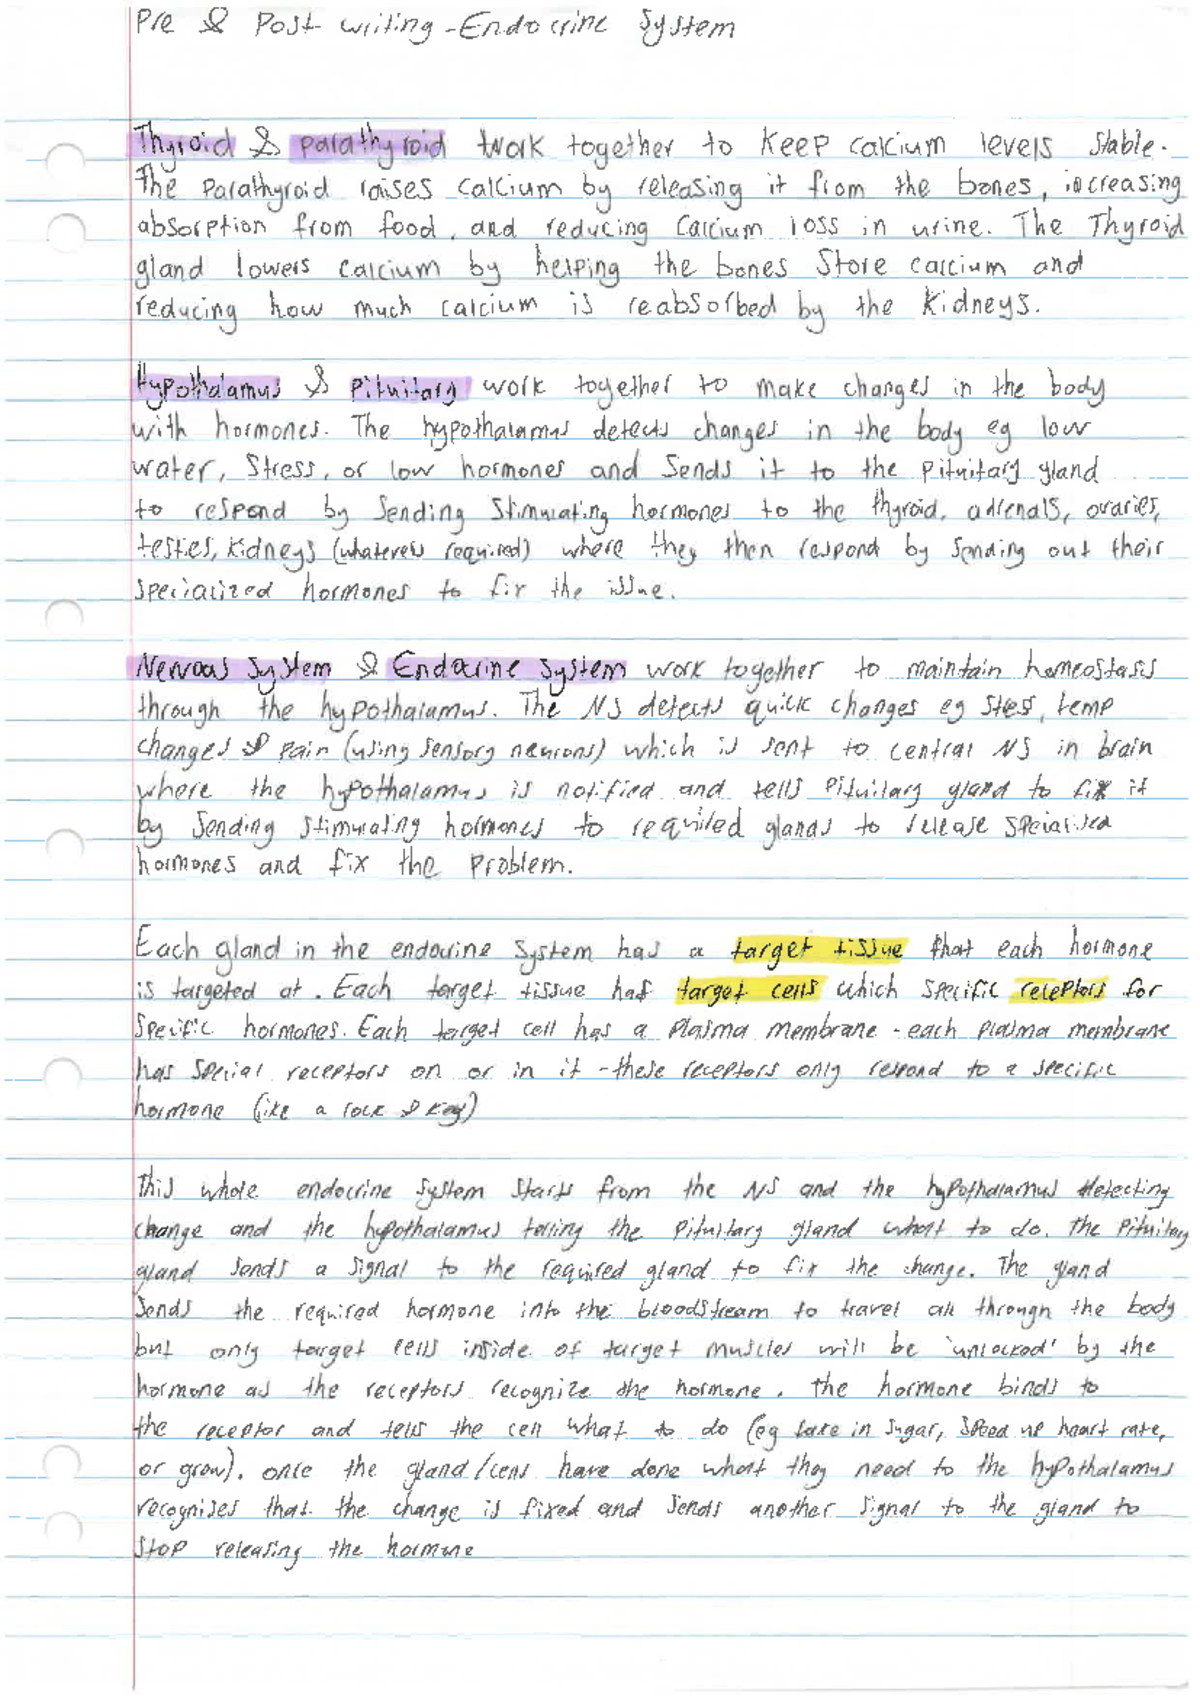 Pre & Post writing - Endocrine System
Thyroid & parathyroid work together to keep calcium levels stable.
The parathyroid raises calcium by releasing it from the bones, increasing
absorption from food, and reducing calcium loss in urine. The Thyroid
gland lowers calcium by helping the bones store calcium and
reducing how much calcium is reabsorbed by the kidneys.
Hypothalamus & pituitary work together to make changes in the body
with hormones. The hypothalamus detects changes in the body eg low
water, stress, or low hormones and sends it to the pituitary gland
to respond by sending stimulating hormones to the thyroid, adrenals, ovaries,
testies, kidneys (whatevers required) where they then respond by sending out their
specialized hormones to fix the issue.
Nervous system & Endocrine system work together to maintain homeostasis
through the hypothalamus. The NS detects quick changes eg stess, temp
changes & pain (using sensory neurons) which is sent to central NS in brain
where the hypothalamus is notified and tells pituitary gland to fix it
by sending stimulating hormones to required glands to release specialised
hormones and fix the problem.
Each gland in the endocrine system has a target tissue that each hormone
is targeted at. Each target tissue has target cells which specific receptors for
specific hormones. Each target cell has a plasma membrane - each plasma membrane
has special receptors on or in it - these receptors only respond to a specific
hormone (like a lock & key)
This whole endocrine system starts from the NS and the hypothalamus detecting
change and the hypothalamus telling the pituitary gland what to do. The pituitary
gland sends a signal to the required gland to fix the change. The gland
sends the required hormone into the bloodstream to travel all through the body
but only target cells inside of target muscles will be 'unlocked' by the
hormone as the receptors recognize the hormone. The hormone binds to
the receptor and tells the cell what to do (eg take in sugar, speed up heart rate,
or grow). once the gland/cells have done what they need to the hypothalamus
recognises that the change is fixed and sends another signal to the gland to
stop releasing the hormone